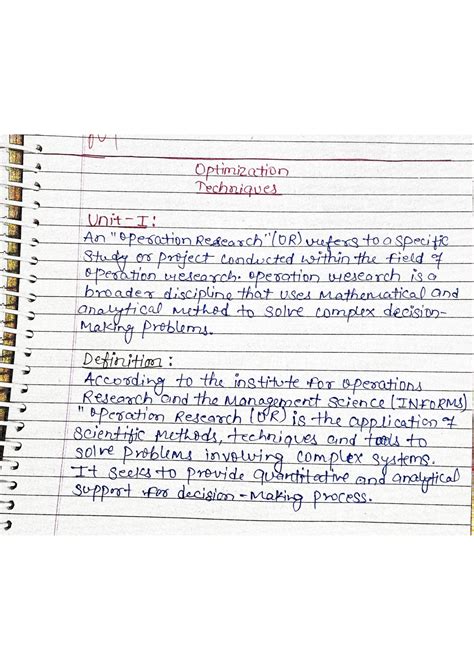 Optimization
Techniques
Unit-I:
An "Operation Research" (OR) refers to a specific
study or project conducted within the field of
operation research. operation research is a
broader discipline that uses Mathematical and
analytical method to solve complex decision-
Making Problems.
Definition:
According to the institute for operations
Research and the Management Science (INFORMS)
"Operation Research (OR) is the application of
scientific Methods, techniques and tools to
solve problems involving complex systems.
It seeks to provide quantitative and analytical
support for decision-Making process.